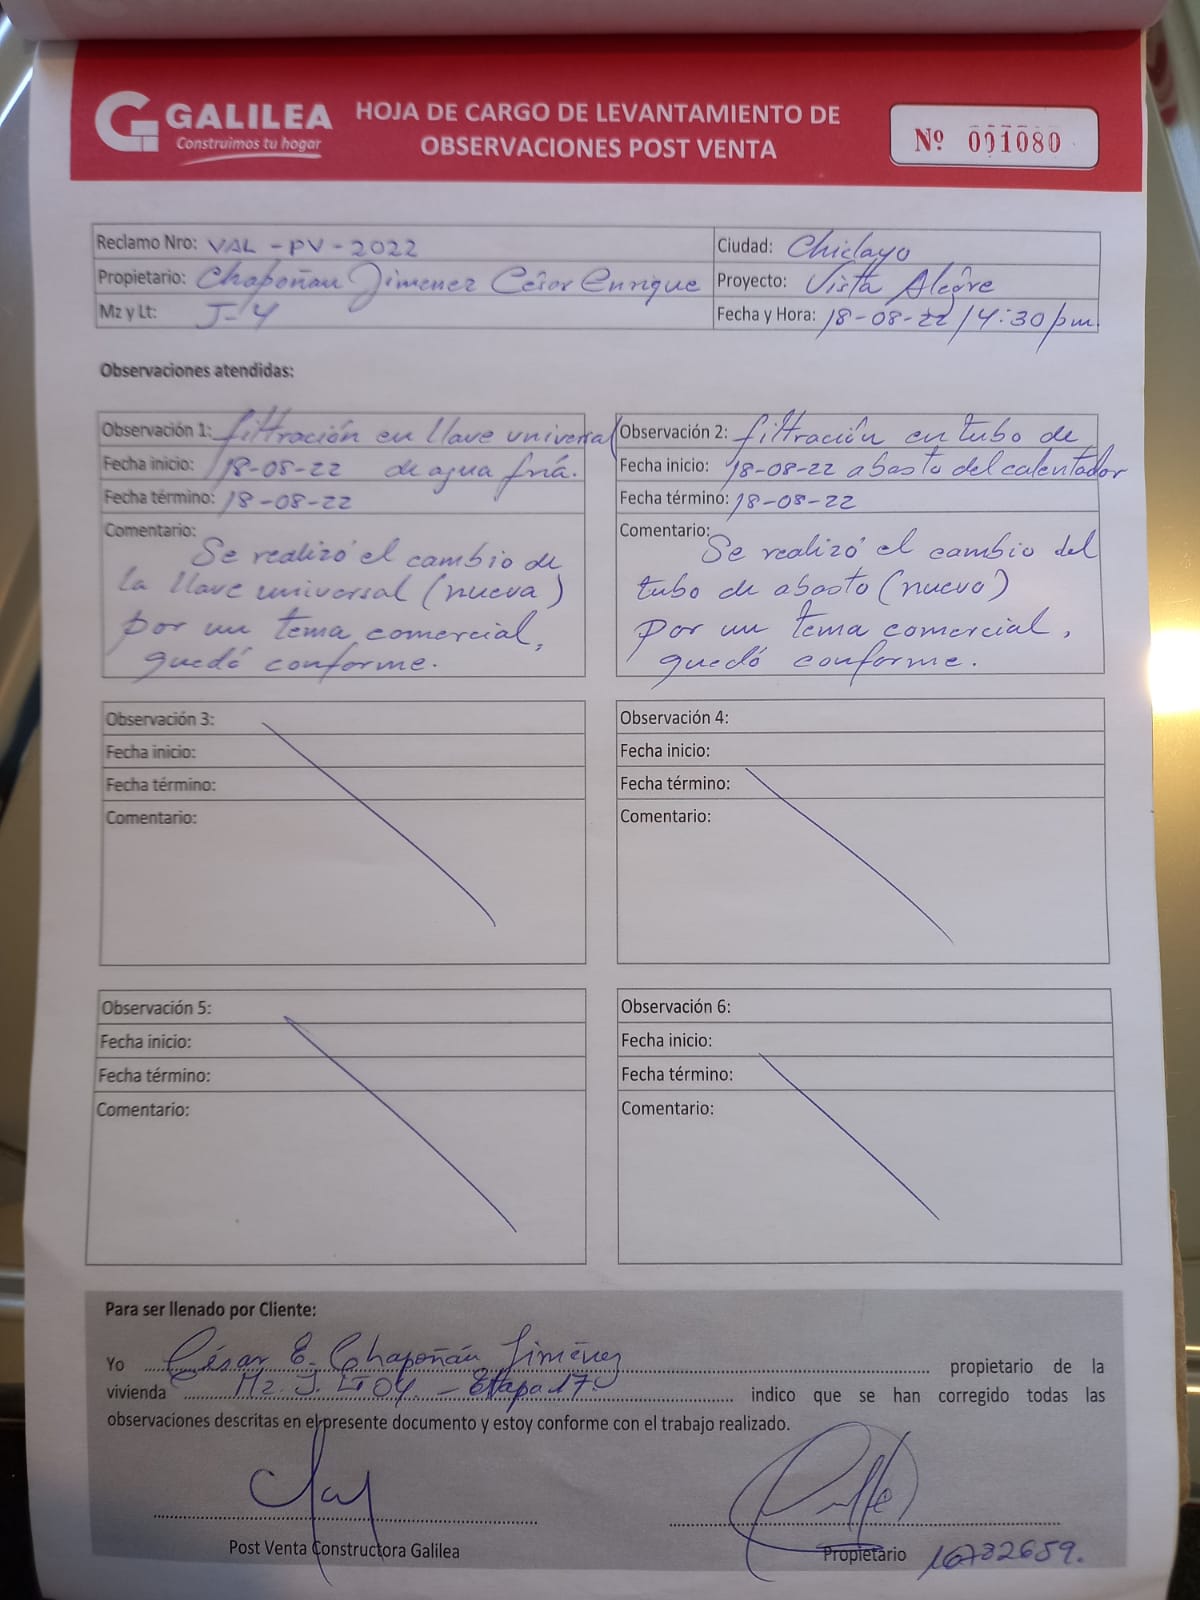 GALILEA
Construimos tu hogar
HOJA DE CARGO DE LEVANTAMIENTO DE
OBSERVACIONES POST VENTA
Nº 001080
Reclamo Nro: VAL-PV-2022
Ciudad: Chiclayo
Propietario: Chapoñan Jimenez César Enrique
Proyecto: Vista Alegre
Mz y Lt: J-4
Fecha y Hora: 18-08-22 / 4:30 pm.
Observaciones atendidas:
Observación 1: filtración en llave universal
Fecha inicio: 18-08-22 de agua fría.
Fecha término: 18-08-22
Comentario:
Se realizó el cambio de
la llave universal (nueva)
por un tema comercial,
quedó conforme.
Observación 2: filtración en tubo de
Fecha inicio: 18-08-22 abasto del calentador
Fecha término: 18-08-22
Comentario:
Se realizó el cambio del
tubo de abasto (nuevo)
por un tema comercial,
quedó conforme.
Observación 3:
Fecha inicio:
Fecha término:
Comentario:
Observación 4:
Fecha inicio:
Fecha término:
Comentario:
Observación 5:
Fecha inicio:
Fecha término:
Comentario:
Observación 6:
Fecha inicio:
Fecha término:
Comentario:
Para ser llenado por Cliente:
Yo César E. Chapoñán Jiménez propietario de la
vivienda Mz. J. LT 04 - Etapa 17. indico que se han corregido todas las
observaciones descritas en el presente documento y estoy conforme con el trabajo realizado.
Post Venta Constructora Galilea
Propietario 16782659.